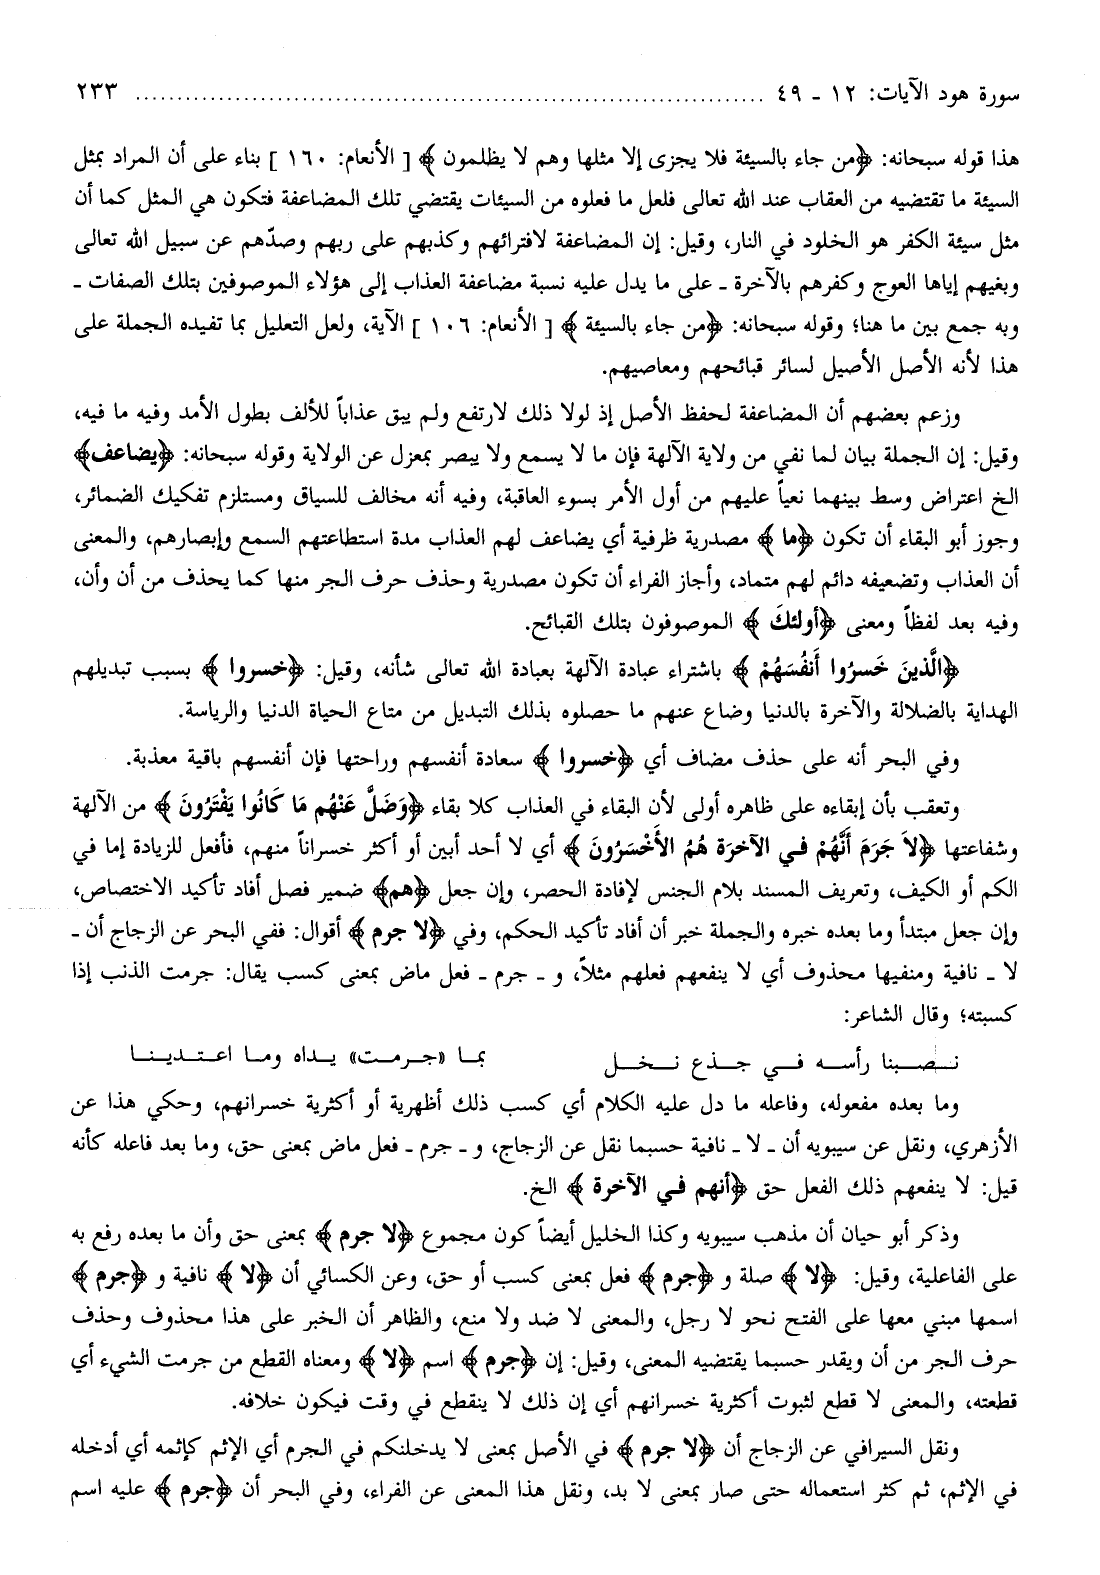 سورة هود الآيات: ١٢ ـ ٤٩ ........................................................................ ٢٣٣
هذا قوله سبحانه: ﴿من جاء بالسيئة فلا يجزى إلا مثلها وهم لا يظلمون ﴾ [ الأنعام: ١٦٠ ] بناء على أن المراد بمثل
السيئة ما تقتضيه من العقاب عند الله تعالى فلعل ما فعلوه من السيئات يقتضي تلك المضاعفة فتكون هي المثل كما أن
مثل سيئة الكفر هو الخلود في النار، وقيل: إن المضاعفة لافترائهم وكذبهم على ربهم وصدّهم عن سبيل الله تعالى
وبغيهم إياها العوج وكفرهم بالآخرة ـ على ما يدل عليه نسبة مضاعفة العذاب إلى هؤلاء الموصوفين بتلك الصفات ـ
وبه جمع بين ما هنا؛ وقوله سبحانه: ﴿من جاء بالسيئة ﴾ [ الأنعام: ١٠٦ ] الآية، ولعل التعليل بما تفيده الجملة على
هذا لأنه الأصل الأصيل لسائر قبائحهم ومعاصيهم.
وزعم بعضهم أن المضاعفة لحفظ الأصل إذ لولا ذلك لارتفع ولم يبق عذاباً للألف بطول الأمد وفيه ما فيه،
وقيل: إن الجملة بيان لما نفي من ولاية الآلهة فإن ما لا يسمع ولا يبصر بمعزل عن الولاية وقوله سبحانه: ﴿يضاعف﴾
الخ اعتراض وسط بينهما نعياً عليهم من أول الأمر بسوء العاقبة، وفيه أنه مخالف للسياق ومستلزم تفكيك الضمائر،
وجوز أبو البقاء أن تكون ﴿ما ﴾ مصدرية ظرفية أي يضاعف لهم العذاب مدة استطاعتهم السمع وإبصارهم، والمعنى
أن العذاب وتضعيفه دائم لهم متماد، وأجاز الفراء أن تكون مصدرية وحذف حرف الجر منها كما يحذف من أن وأن،
وفيه بعد لفظاً ومعنى ﴿أولئكَ ﴾ الموصوفون بتلك القبائح.
﴿الَّذينَ خَسرُوا أَنفُسَهُمْ ﴾ باشتراء عبادة الآلهة بعبادة الله تعالى شأنه، وقيل: ﴿خسروا ﴾ بسبب تبديلهم
الهداية بالضلالة والآخرة بالدنيا وضاع عنهم ما حصلوه بذلك التبديل من متاع الحياة الدنيا والرياسة.
وفي البحر أنه على حذف مضاف أي ﴿خسروا ﴾ سعادة أنفسهم وراحتها فإن أنفسهم باقية معذبة.
وتعقب بأن إبقاءه على ظاهره أولى لأن البقاء في العذاب كلا بقاء ﴿وَضَلَّ عَنْهُم مَا كَانُوا يَفْتَرُونَ ﴾ من الآلهة
وشفاعتها ﴿لاَ جَرَمَ أَنَّهُمْ فـي الآخرَة هُمُ الأَخْسَرُونَ ﴾ أي لا أحد أبين أو أكثر خسراناً منهم، فأفعل للزيادة إما في
الكم أو الكيف، وتعريف المسند بلام الجنس لإفادة الحصر، وإن جعل ﴿هم﴾ ضمير فصل أفاد تأكيد الاختصاص،
وإن جعل مبتدأ وما بعده خبره والجملة خبر أن أفاد تأكيد الحكم، وفي ﴿لا جرم ﴾ أقوال: ففي البحر عن الزجاج أن ـ
لا ـ نافية ومنفيها محذوف أي لا ينفعهم فعلهم مثلاً، و ـ جرم ـ فعل ماض بمعنى كسب يقال: جرمت الذنب إذا
كسبته؛ وقال الشاعر:
نـصـبنا رأسـه فـي جـذع نـخـل بمـا «جـرمـت» يـداه ومـا اعـتـديـنـا
وما بعده مفعوله، وفاعله ما دل عليه الكلام أي كسب ذلك أظهرية أو أكثرية خسرانهم، وحكي هذا عن
الأزهري، ونقل عن سيبويه أن ـ لا ـ نافية حسبما نقل عن الزجاج، و ـ جرم ـ فعل ماض بمعنى حق، وما بعد فاعله كأنه
قيل: لا ينفعهم ذلك الفعل حق ﴿أنهم فـي الآخرة ﴾ الخ.
وذكر أبو حيان أن مذهب سيبويه وكذا الخليل أيضاً كون مجموع ﴿لا جرم ﴾ بمعنى حق وأن ما بعده رفع به
على الفاعلية، وقيل: ﴿لا ﴾ صلة و ﴿جرم ﴾ فعل بمعنى كسب أو حق، وعن الكسائي أن ﴿لا ﴾ نافية و ﴿جرم ﴾
اسمها مبني معها على الفتح نحو لا رجل، والمعنى لا ضد ولا منع، والظاهر أن الخبر على هذا محذوف وحذف
حرف الجر من أن ويقدر حسبما يقتضيه المعنى، وقيل: إن ﴿جرم ﴾ اسم ﴿لا ﴾ ومعناه القطع من جرمت الشيء أي
قطعته، والمعنى لا قطع لثبوت أكثرية خسرانهم أي إن ذلك لا ينقطع في وقت فيكون خلافه.
ونقل السيرافي عن الزجاج أن ﴿لا جرم ﴾ في الأصل بمعنى لا يدخلنكم في الجرم أي الإثم كإثمه أي أدخله
في الإثم، ثم كثر استعماله حتى صار بمعنى لا بد، ونقل هذا المعنى عن الفراء، وفي البحر أن ﴿جرم ﴾ عليه اسم